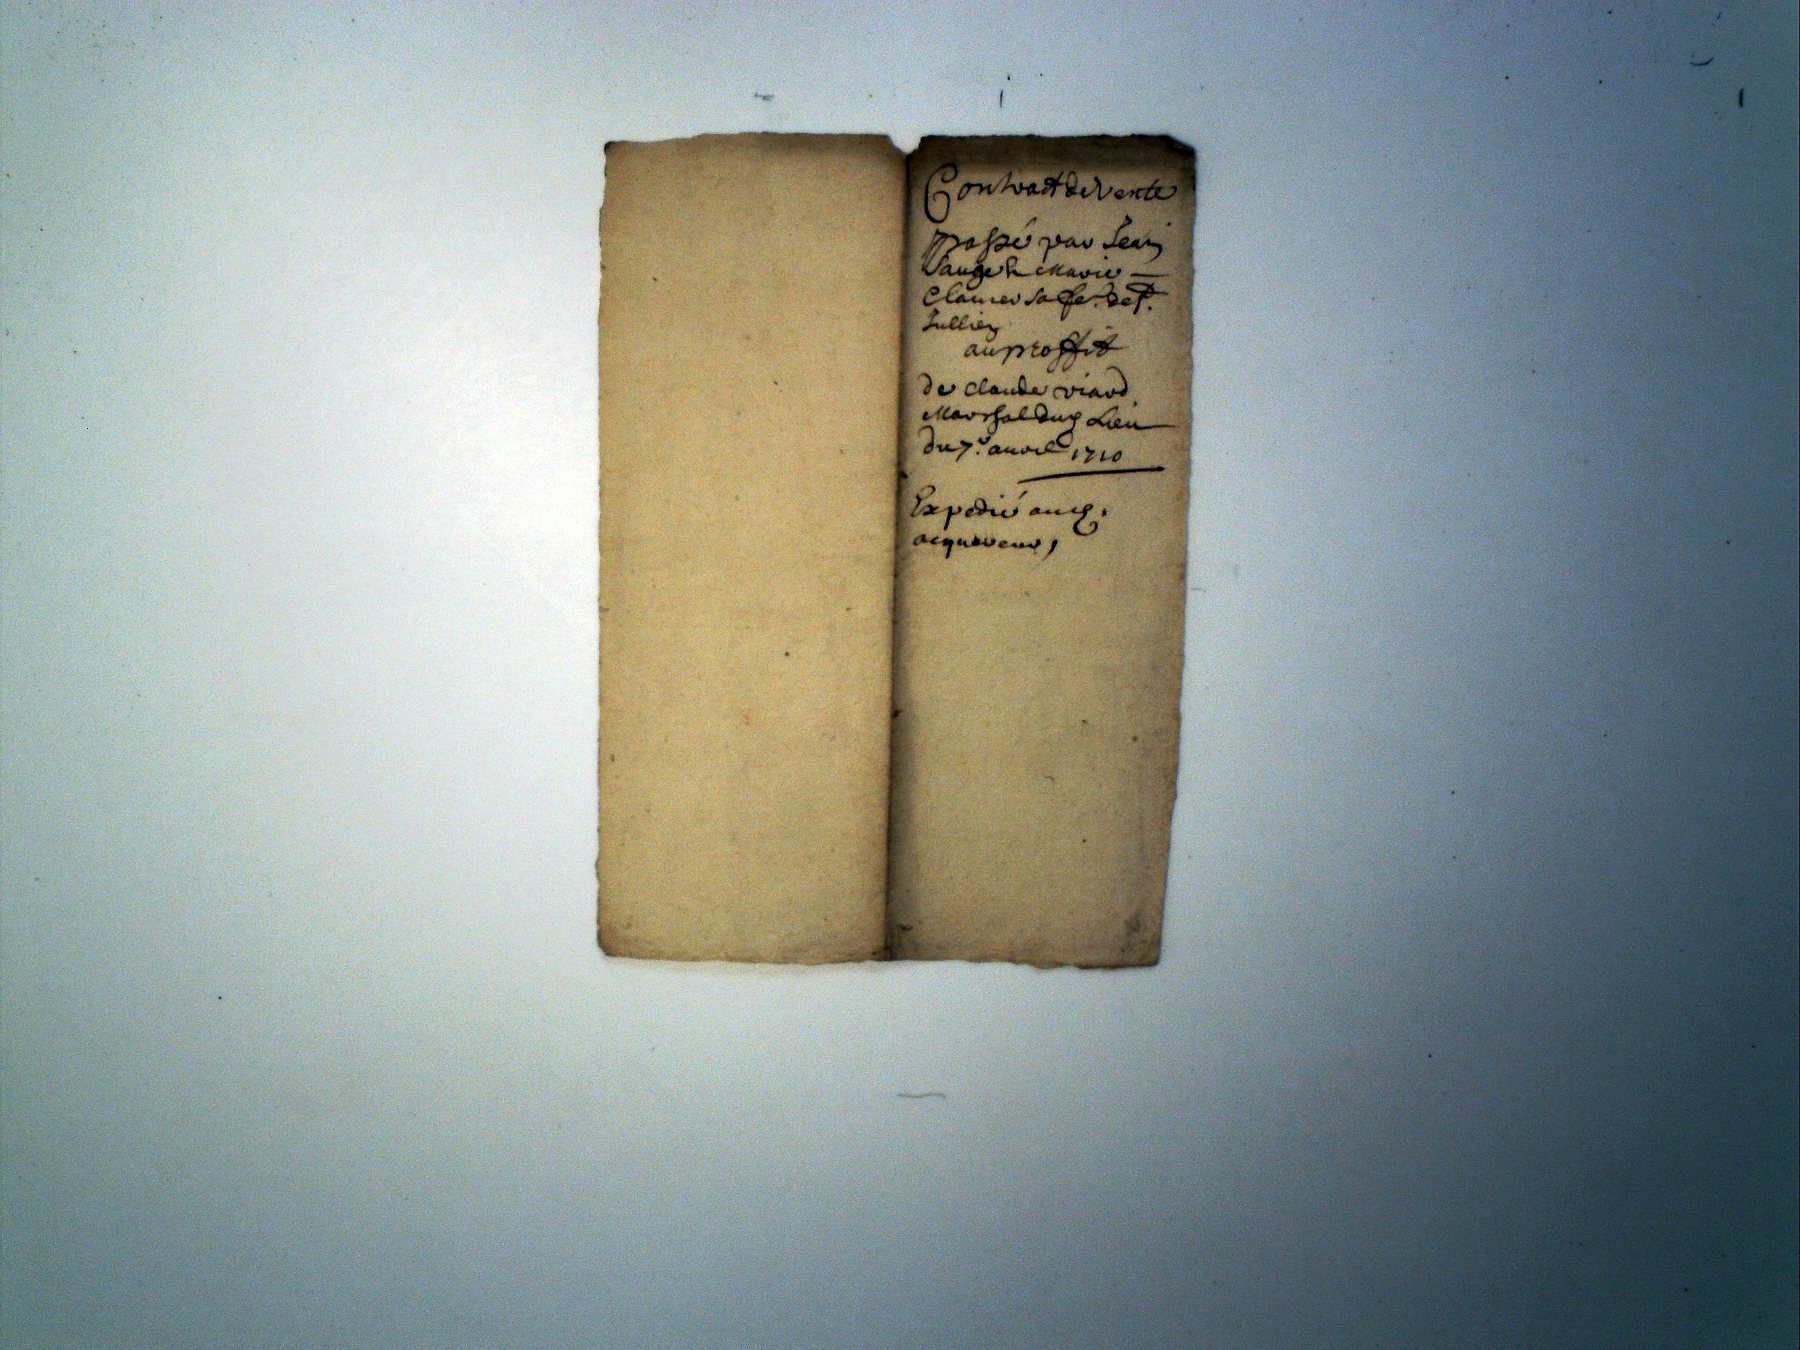 Contract de Vente
passé par Jean
Vauget Marie
sa fe. de St.
Jullien
au proffit
de claude viard
Marshal dud Lieu
du 7e. avril 1710
Expedié aud.
acquereur,